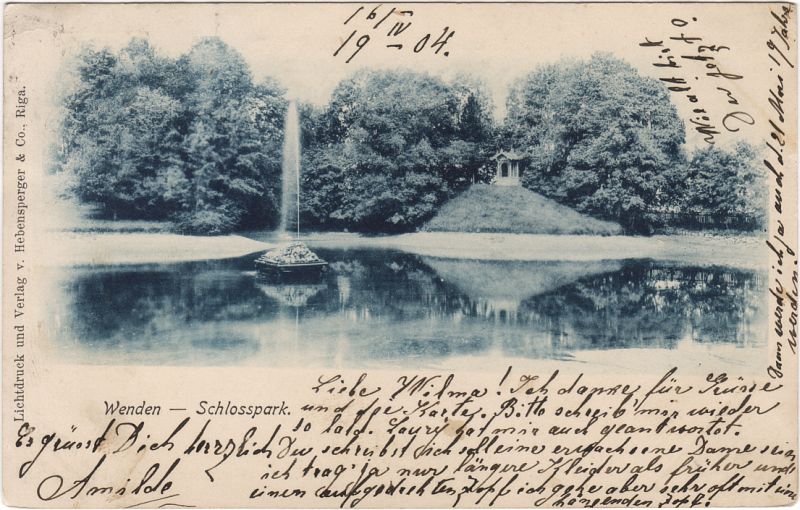 16/IV
19 04.
Lichtdruck und Verlag v. Hebensperger & Co., Riga.
Wenden — Schlosspark.
Liebe Wilma! Ich danke für Grüsse
und die Karte. Bitte schreib' mir wieder
so bald. Laury hat mir auch geantwortet.
Du schreibst ich soll eine erwachsene Dame sein
ich trag' ja nur längere Kleider als früher und
einen aufgesteckten Zopf ich gehe aber sehr oft mit ein
hängenden Zopf.
Dann werde ich ja auch d. 21 Mai 17 Jahre
werden.
Es grüsst Dich herzlich
Amilde